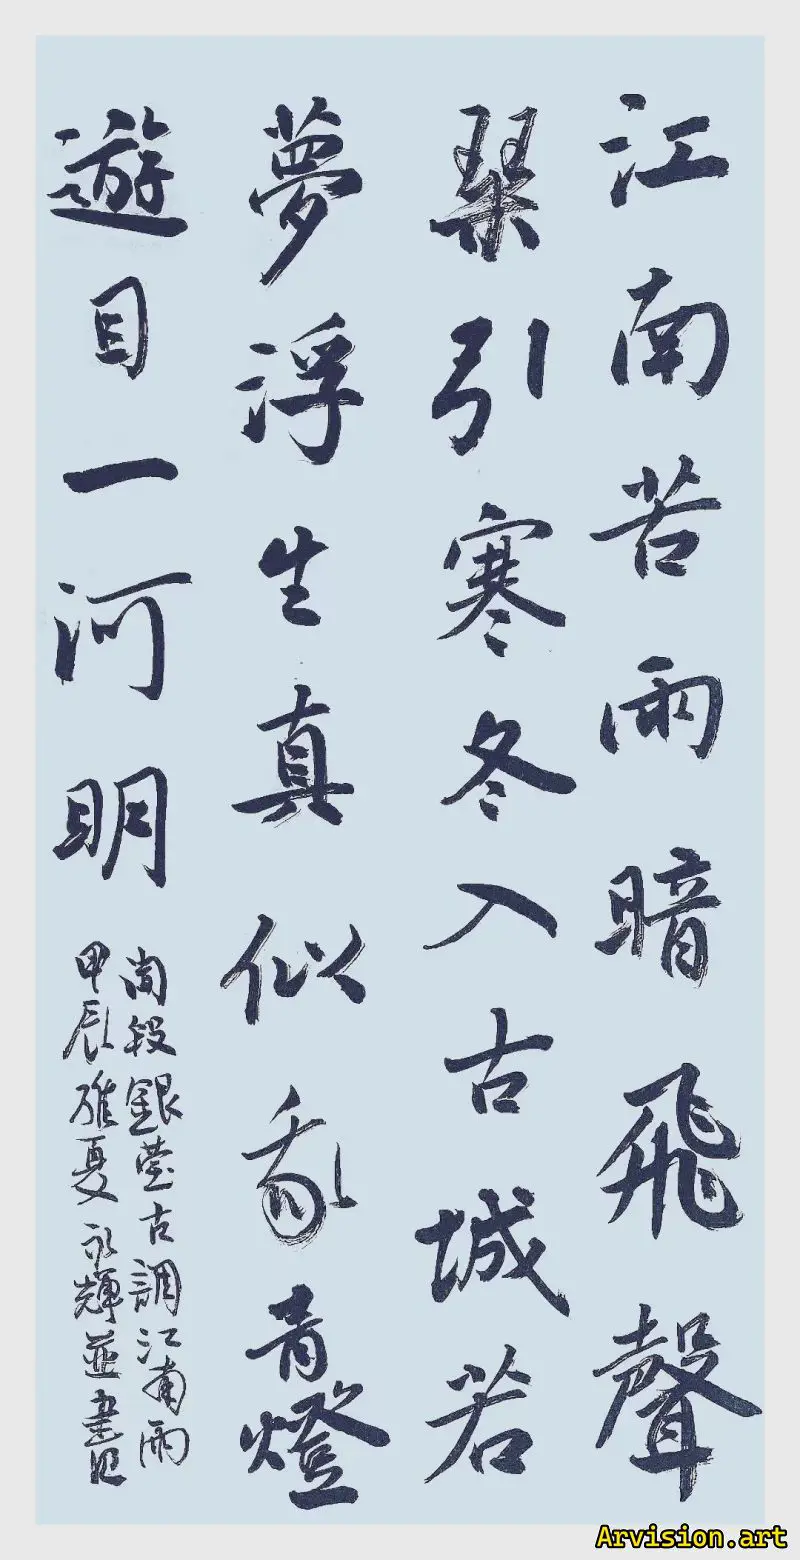 江南苦雨暗飛聲
琹引寒冬入古城若
夢浮生真似亂青燈
遊目一河明
銀臺古調江南雨
甲辰雅夏永輝並書
Arvision.art